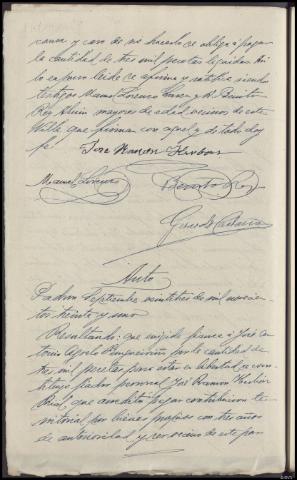 causa y caso de no hacerlo se obliga á pagar
la cantidad de tres mil pesetas líquidas. Así
lo expuso leido se afirma y ratifica siendo
testigos Manuel Lorenzo y D. Benito
Rey mayores de edad vecinos de esta
Villa que firman con aquel y de todo doy
fé.
José Ramón
Manuel Lorenzo Benito Rey
Gerardo
Auto
Padron Septiembre veintitres de mil novecien-
tos treinta y uno
Resultando: que exigida fianza á José An-
tonio por la cantidad de
tres mil pesetas para estar en libertad se cons-
tituye fiador personal José Ramon
que acredita pagar contribucion te-
rritorial por bienes propios con tres años
de anterioridad y ser vecino de este par-